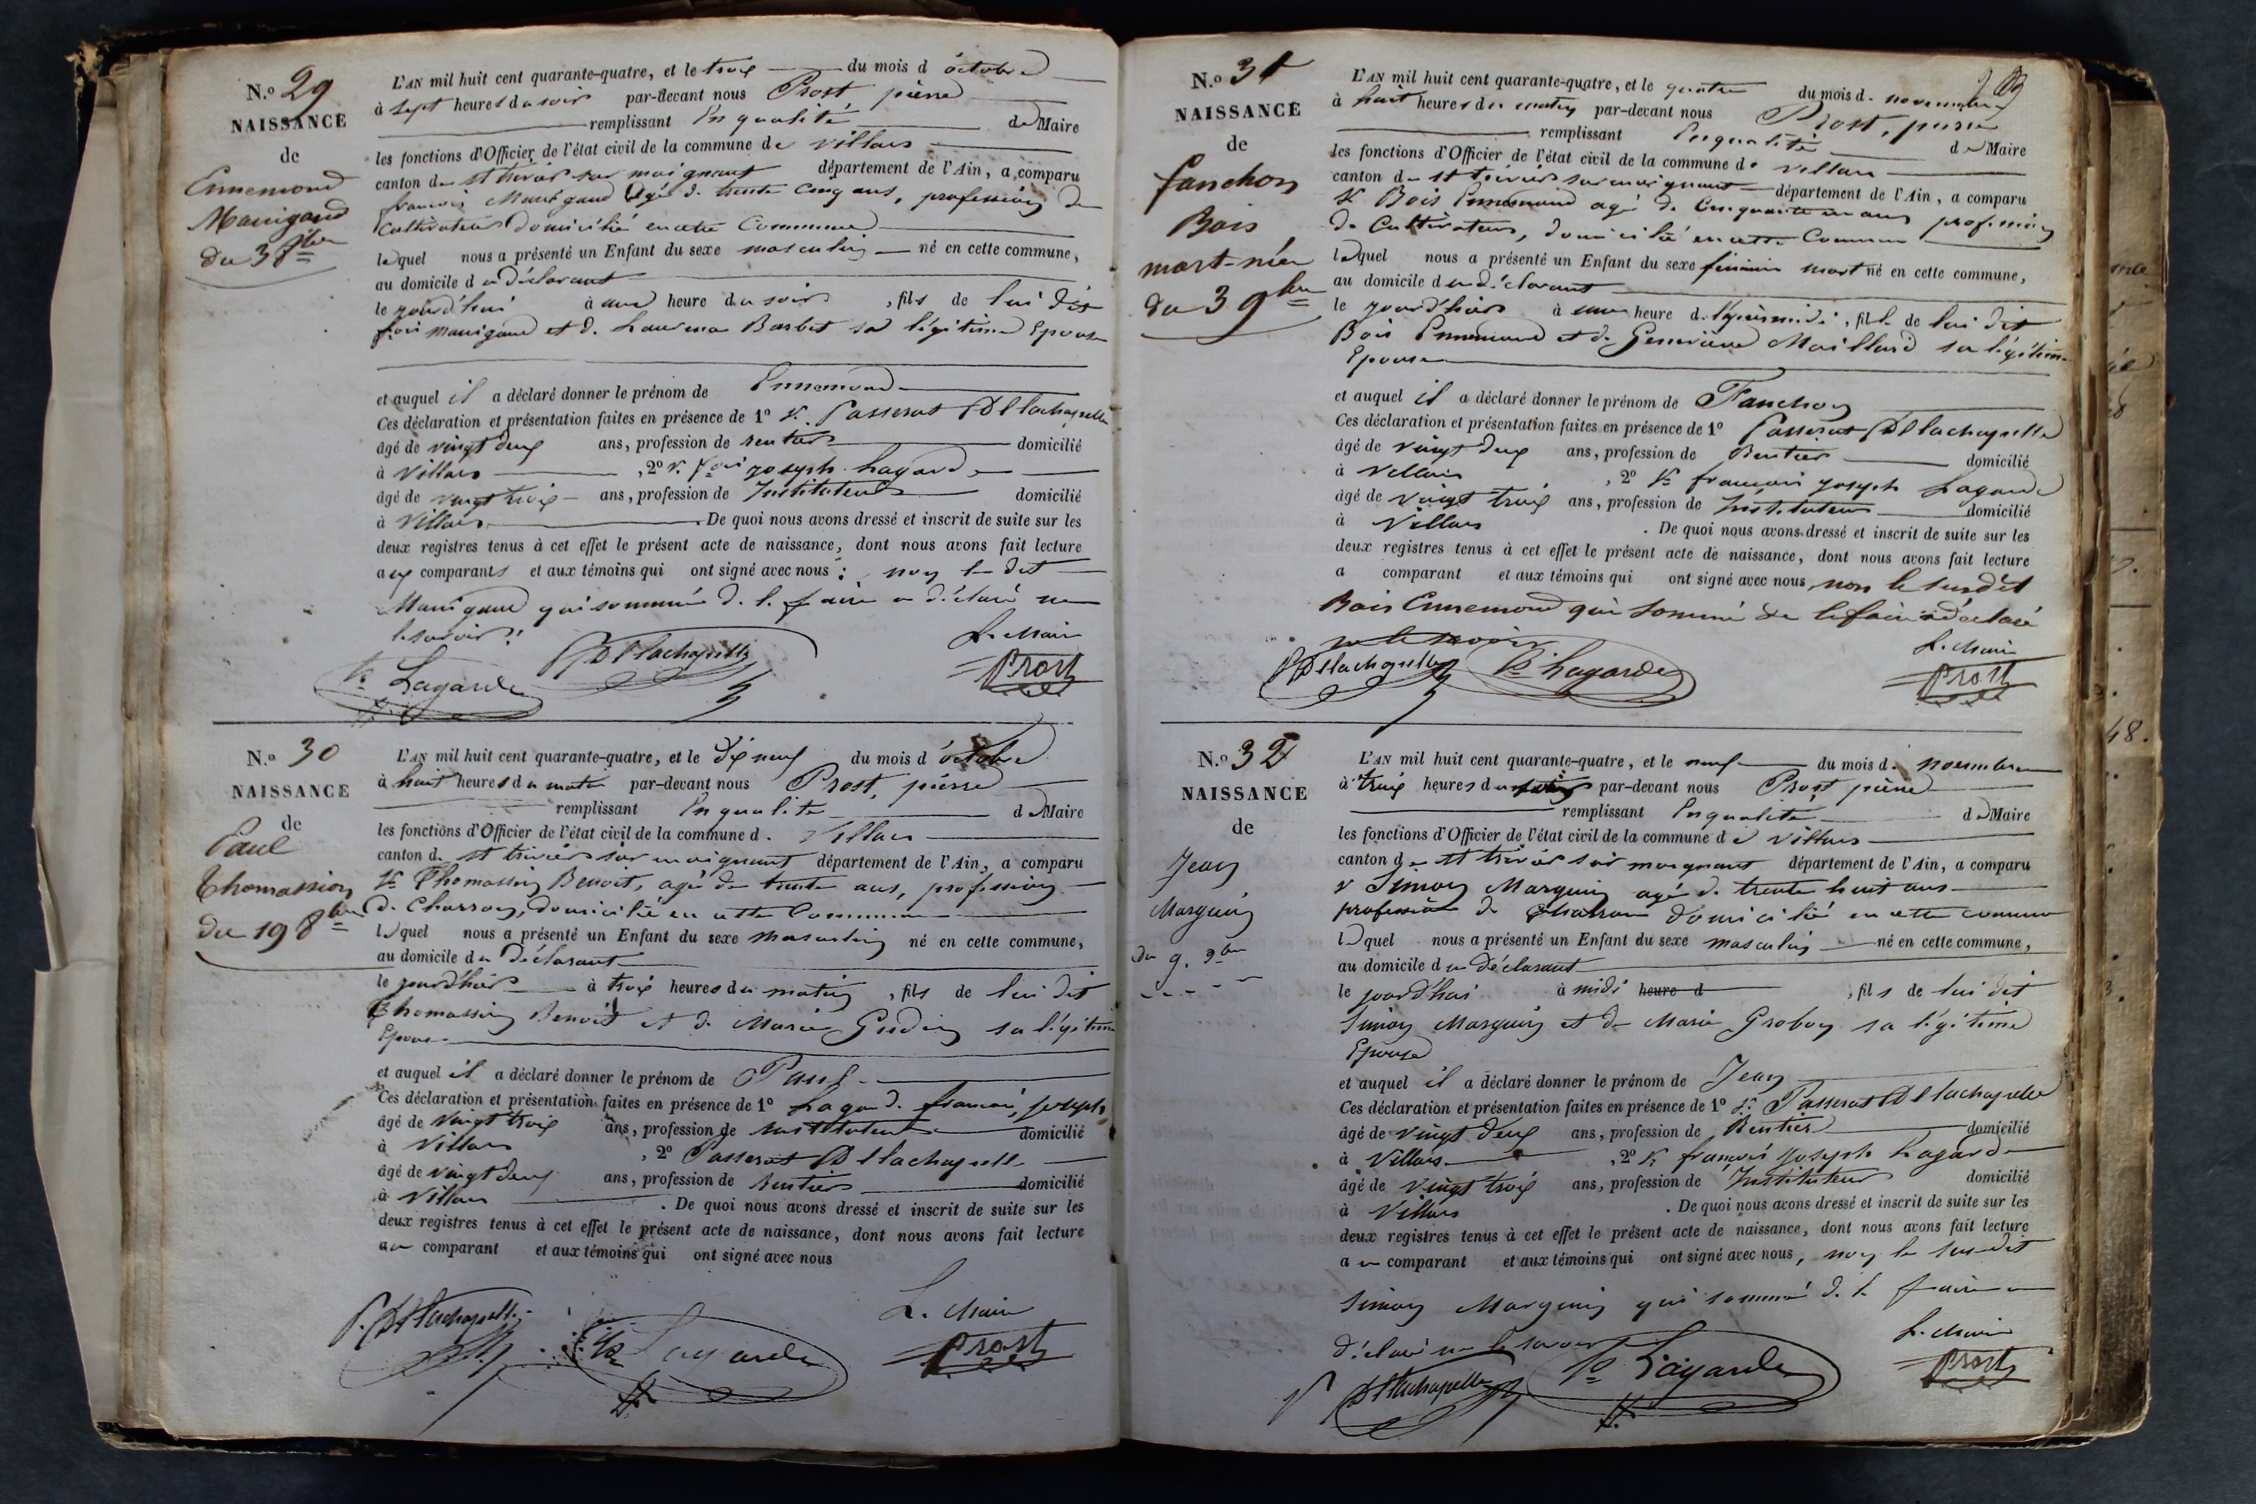 N.º 29
NAISSANCE
de
Ennemond
Manigand
du 3 8bre
L'AN mil huit cent quarante-quatre, et le trois du mois d'octobre
à sept heures du soir par-devant nous Prost pierre
remplissant En qualité de Maire
les fonctions d'Officier de l'état civil de la commune de villars
canton de st trivier sur moignant département de l'Ain, a comparu
francois Manigand agé de trente cinq ans, profession de
Cultivateur domicilié en cette Commune
lequel nous a présenté un Enfant du sexe masculin né en cette commune,
au domicile du déclarant
le jourd'hui à une heure du soir, fils de lui dit
fois manigand et de Barbet sa légitime Epouse
et auquel il a déclaré donner le prénom de Ennemond
Ces déclaration et présentation faites en présence de 1º Sr. Passerat Dllachapelle
âgé de vingt deux ans, profession de rentier domicilié
à Villars, 2º Sr. fois joseph Lagarde
âgé de vingt trois ans, profession de Instituteur domicilié
à Villars. De quoi nous avons dressé et inscrit de suite sur les
deux registres tenus à cet effet le présent acte de naissance, dont nous avons fait lecture
aux comparants et aux témoins qui ont signé avec nous : non le dit
Manigand qui sommé de le faire a déclaré ne
le savoir
Le Maire
P Dllachapelle
Lagarde
Prost
N.º 30
NAISSANCE
de
Paul
Thomassin
du 19 8bre
L'AN mil huit cent quarante-quatre, et le dix neuf du mois d'octobre
à huit heures du matin par-devant nous Prost, pierre
remplissant En qualité de Maire
les fonctions d'Officier de l'état civil de la commune d. Villars
canton de st trivier sur moignant département de l'Ain, a comparu
Sr Thomassin Benoit, agé de trente ans, profession
de Charron, domicilié en cette Commune
lequel nous a présenté un Enfant du sexe masculin né en cette commune,
au domicile du Déclarant
le jourd'hui à trois heures du matin, fils de lui dit
Thomassin Benoit et de Marie Gudin sa légitime
Epouse
et auquel il a déclaré donner le prénom de Paul
Ces déclaration et présentation faites en présence de 1º Lagarde francois, joseph
âgé de vingt trois ans, profession de instituteur domicilié
à Villars, 2º Passerat Dllachapelle
âgé de vingt deux ans, profession de Rentier domicilié
à Villars. De quoi nous avons dressé et inscrit de suite sur les
deux registres tenus à cet effet le présent acte de naissance, dont nous avons fait lecture
au comparant et aux témoins qui ont signé avec nous
Le Maire
P. Dllachapelle
Lagarde
Prost
N.º 31
NAISSANCE
de
fanchon
Bois
mort-née
du 3 9bre
L'AN mil huit cent quarante-quatre, et le quatre du mois d. novembre
à huit heures du matin par-devant nous Prost, pierre
remplissant En qualité de Maire
les fonctions d'Officier de l'état civil de la commune de villars
canton de st trivier sur moignant département de l'Ain, a comparu
Sr Bois Ennemond agé de Cinquante ans profession
de Cultivateur, domicilié en cette Commune
lequel nous a présenté un Enfant du sexe féminin mort né en cette commune,
au domicile du déclarant
le jourd'hier à une heure d'après midi, fille de lui dit
Bois Ennemond et de Geneviève Maillard sa légitime
Epouse
et auquel il a déclaré donner le prénom de Fanchon
Ces déclaration et présentation faites en présence de 1º Passerat Dllachapelle
âgé de vingt deux ans, profession de Rentier domicilié
à Villars, 2º Sr francois joseph Lagarde
âgé de vingt trois ans, profession de Instituteur domicilié
à Villars. De quoi nous avons dressé et inscrit de suite sur les
deux registres tenus à cet effet le présent acte de naissance, dont nous avons fait lecture
a comparant et aux témoins qui ont signé avec nous non le susdit
Bois Ennemond qui sommé de le faire a déclaré
ne le savoir
Le Maire
P Dllachapelle
Lagarde
Prost
N.º 32
NAISSANCE
de
Jean
Marguin
du 9. 9bre
L'AN mil huit cent quarante-quatre, et le neuf du mois d. novembre
à trois heures du par-devant nous Prost pierre
remplissant En qualité de Maire
les fonctions d'Officier de l'état civil de la commune de Villars
canton de st trivier sur moignant département de l'Ain, a comparu
Sr Simon Marguin agé de trente huit ans
profession de charron domicilié en cette commune
lequel nous a présenté un Enfant du sexe masculin né en cette commune,
au domicile du déclarant
le jourd'hui à midi heure d, fils de lui dit
Simon Marguin et de Marie Grobon sa légitime
Epouse
et auquel il a déclaré donner le prénom de Jean
Ces déclaration et présentation faites en présence de 1º Sr. Passerat Dllachapelle
âgé de vingt deux ans, profession de Rentier domicilié
à Villars, 2º Sr francois Joseph Lagarde
âgé de vingt trois ans, profession de Instituteur domicilié
à Villars. De quoi nous avons dressé et inscrit de suite sur les
deux registres tenus à cet effet le présent acte de naissance, dont nous avons fait lecture
au comparant et aux témoins qui ont signé avec nous, non le susdit
Simon Marguin qui sommé de le faire a
déclaré ne le savoir
Le Maire
P Dllachapelle
Lagarde
Prost